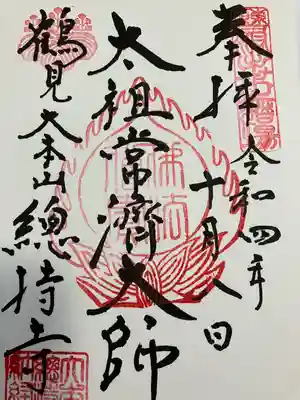 奉拝 令和四年
十月八日
太祖常濟大師
鶴見大本山總持寺